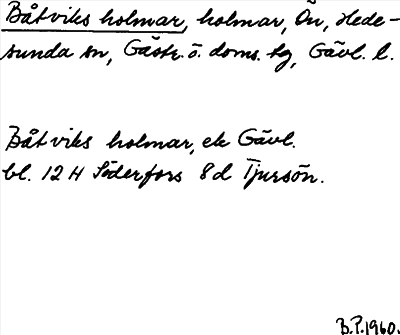 Båtviks holmar, holmar, Ön, Hede-
sunda sn, Gästr. ö. doms. tg, Gävl. l.
Båtviks holmar, ek Gävl.
bl. 12 H Söderfors 8d Tjursön.
B.P. 1960.